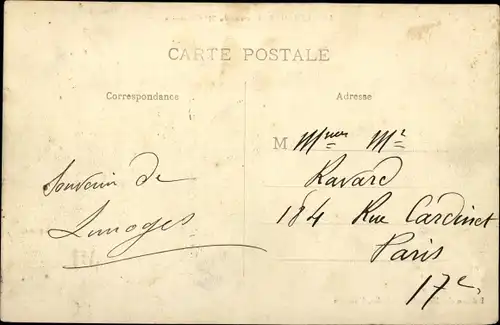 CARTE POSTALE
Correspondance
Adresse
Souvenir de
Limoges
M Mmes Mr
Ravard
184 Rue Cardinet
Paris
17e